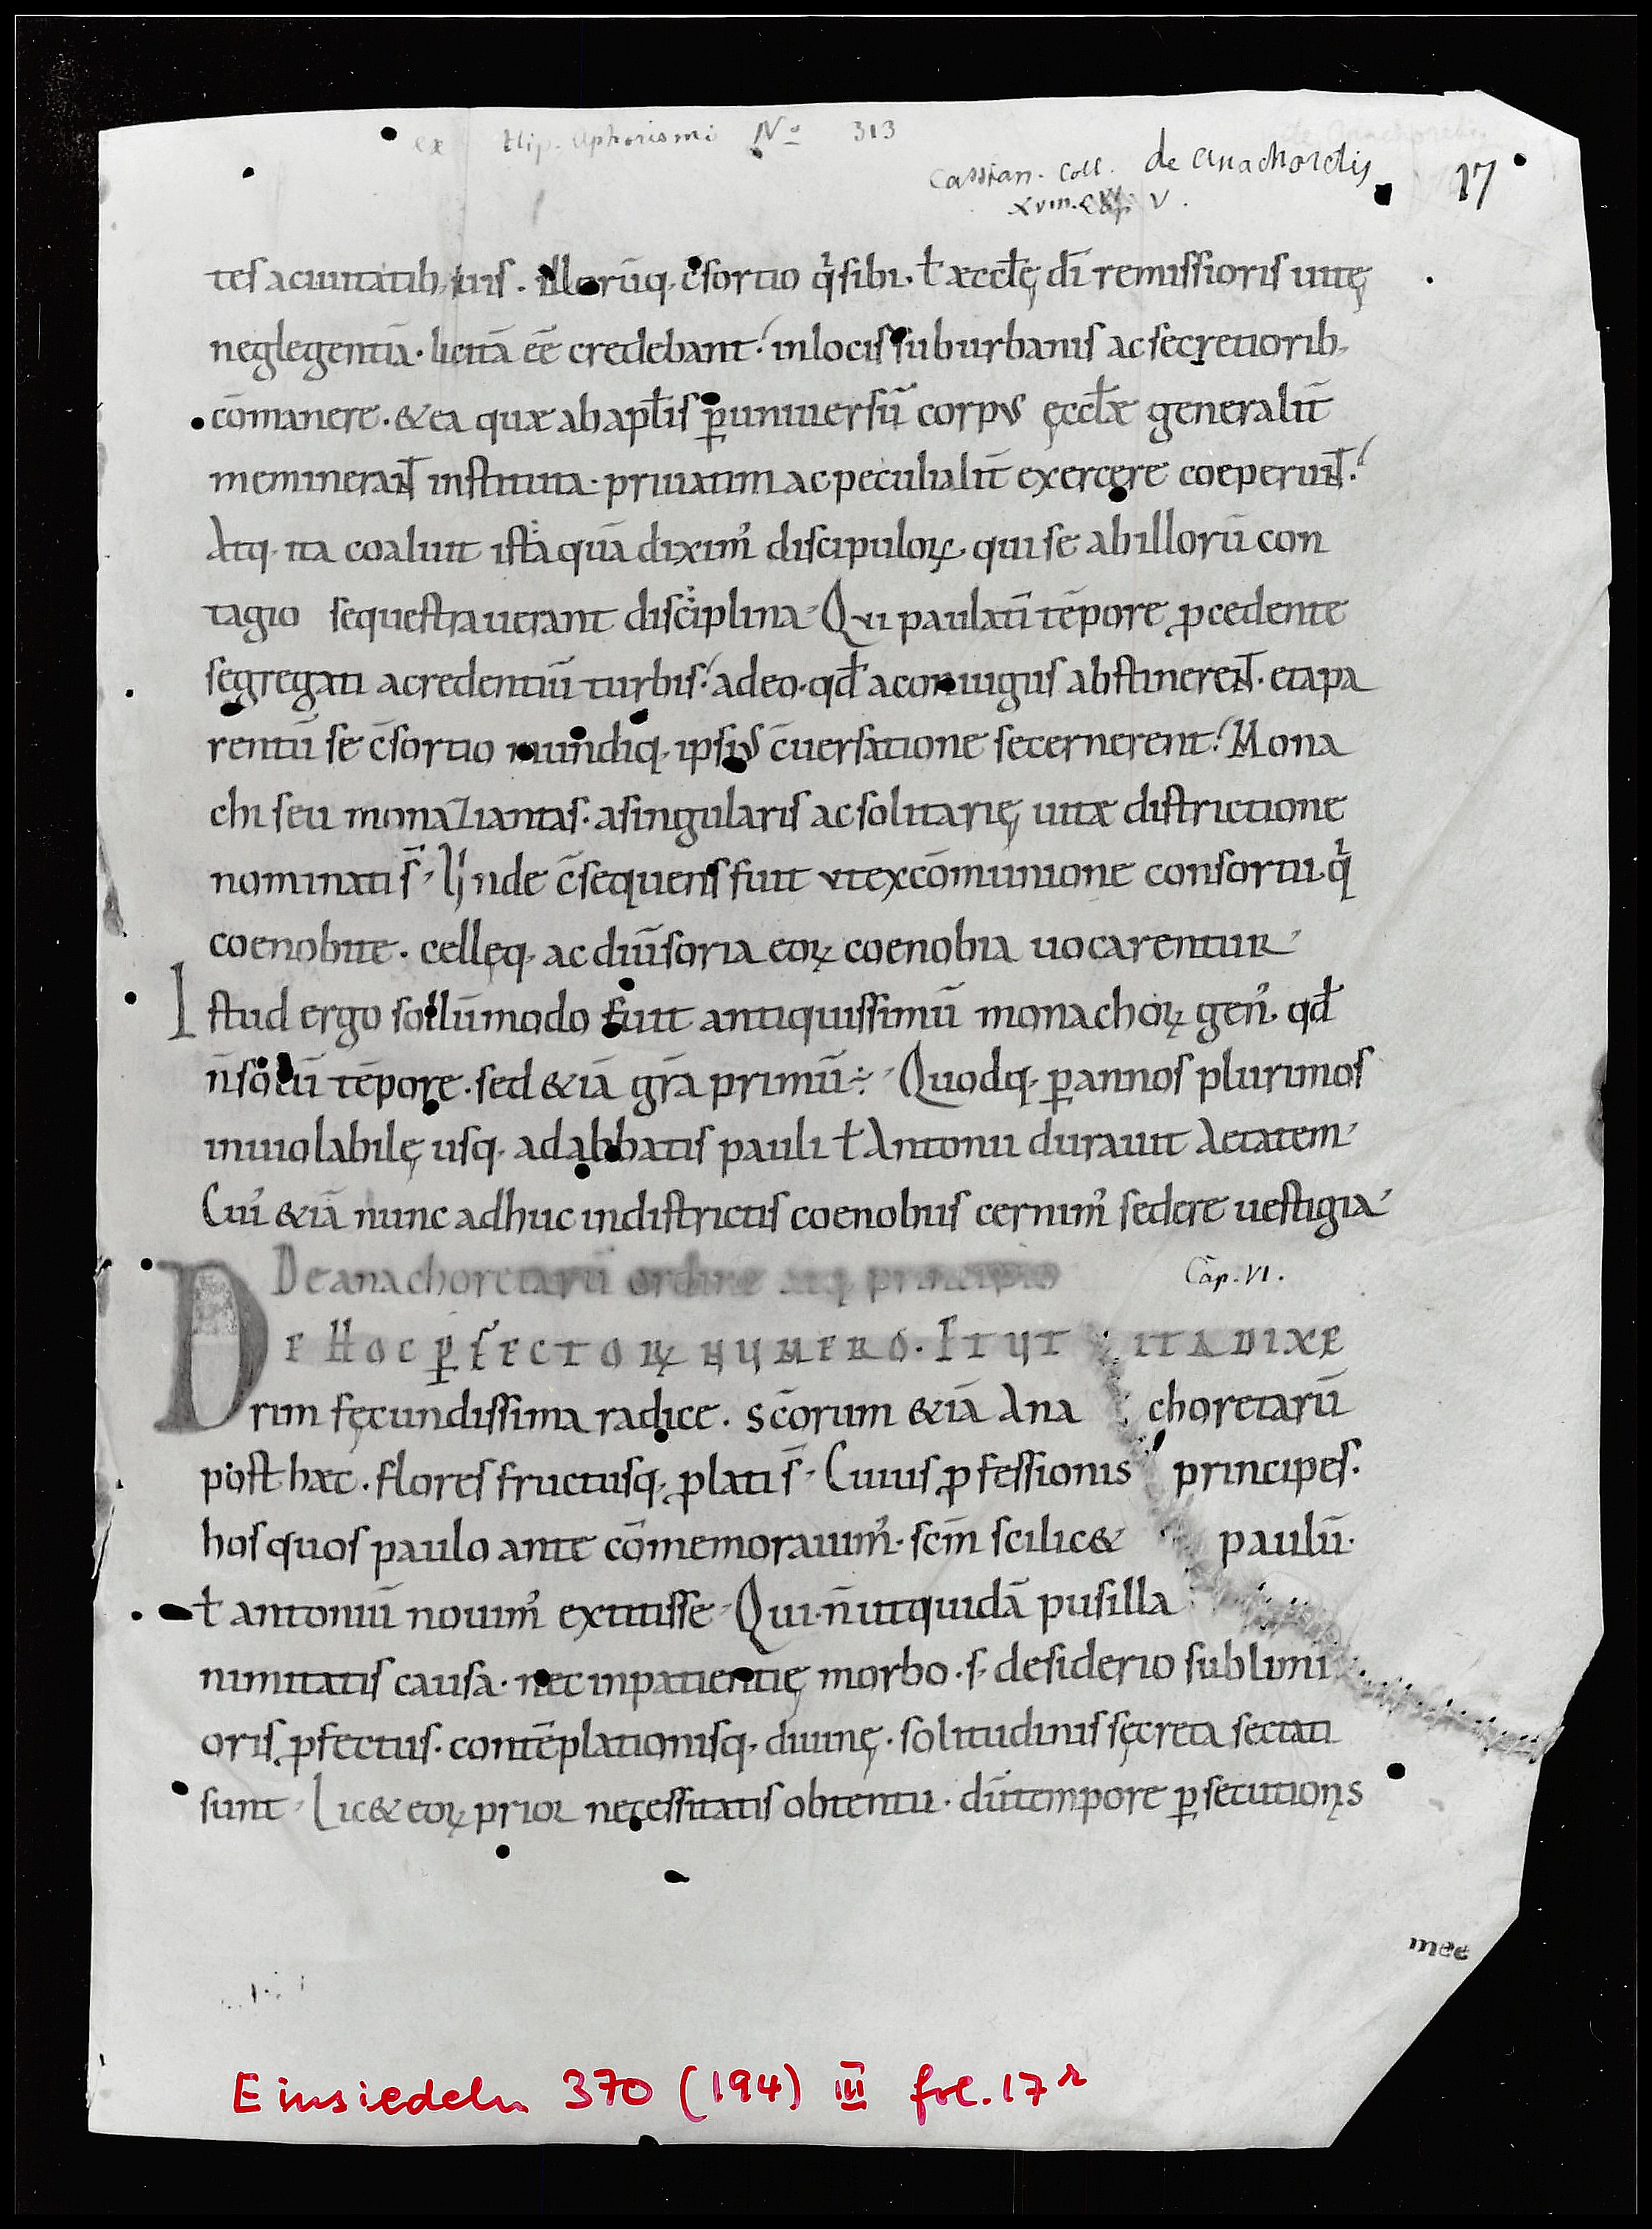 ex Hip. Aphorismi Nº 313
Cassian. Coll. de anachoretis
XVIII. Cap. V.
17
tes a ciuitatib; suis. illorūq; c̄sortio qͥ sibi. ł æccłę dī remissioris uitę
neglegentiā. licitā eē credebant. in locis suburbanis ac secretiorib;
cōmanere. & ea quæ ab apłis ꝑ uniuersū corpus ęccłæ generalit̄
meminerant instituta. priuatim ac peculialit̄ exercere coeperunt.
Atq; ita coaluit ista quā diximꝰ discipuloꝝ. qui se ab illorū con
tagio sequestrauerant disciplina. Qui paulatī tēpore ꝓcedente
segregati a credentiū turbis. adeo. qđ a coniugiis abstinerent. et a pa
rentū se c̄sortio mundiq; ipsius c̄uersatione secernerent. Mona
chi seu monaziantas. a singularis ac solitarię uitæ districtione
nominati s̄. Unde c̄sequens fuit ut ex cōmunione consortii. qͥ
coenobite. cellęq; ac diūsoria eoꝝ coenobia uocarentur.
Istud ergo solūmodo fuit antiquissimū monachoꝝ genꝰ. qđ
n̄ solū tēpore. sed &iā gr̄a primū ÷. Quodq; ꝑ annos plurimos
inuiolabilę usq; ad abbatis pauli ł Antonii durauit Aetatem.
Cuiꝰ &iā nunc adhuc in districtis coenobiis cernimꝰ sedere uestigia.
De anachoretarū ordine atq; principio Cap. VI.
DE HOC ꝑFECTOꝝ NUMERO. ET UT ITA DIXE
rim fęcundissima radice. sc̄orum &iā Ana choretarū
post hæc. flores fructusq; ꝓlati s̄. Cuius ꝓfessionis principes.
hos quos paulo ante cōmemorauimꝰ. scm̄ scilic& paulū.
ł antoniū nouimꝰ extitisse. Qui. n̄ ut quidā pusilla
nimitatis causa. nec inpatientię morbo. s; desiderio sublimi
oris ꝓfectus. contēplationisq; diuinę. solitudinis sęcreta sectati
sunt. Lic& eoꝝ prior necessitatis obtentu. dū tempore ꝑsecutionis
mee
Einsiedeln 370 (194) III fol. 17ʳ